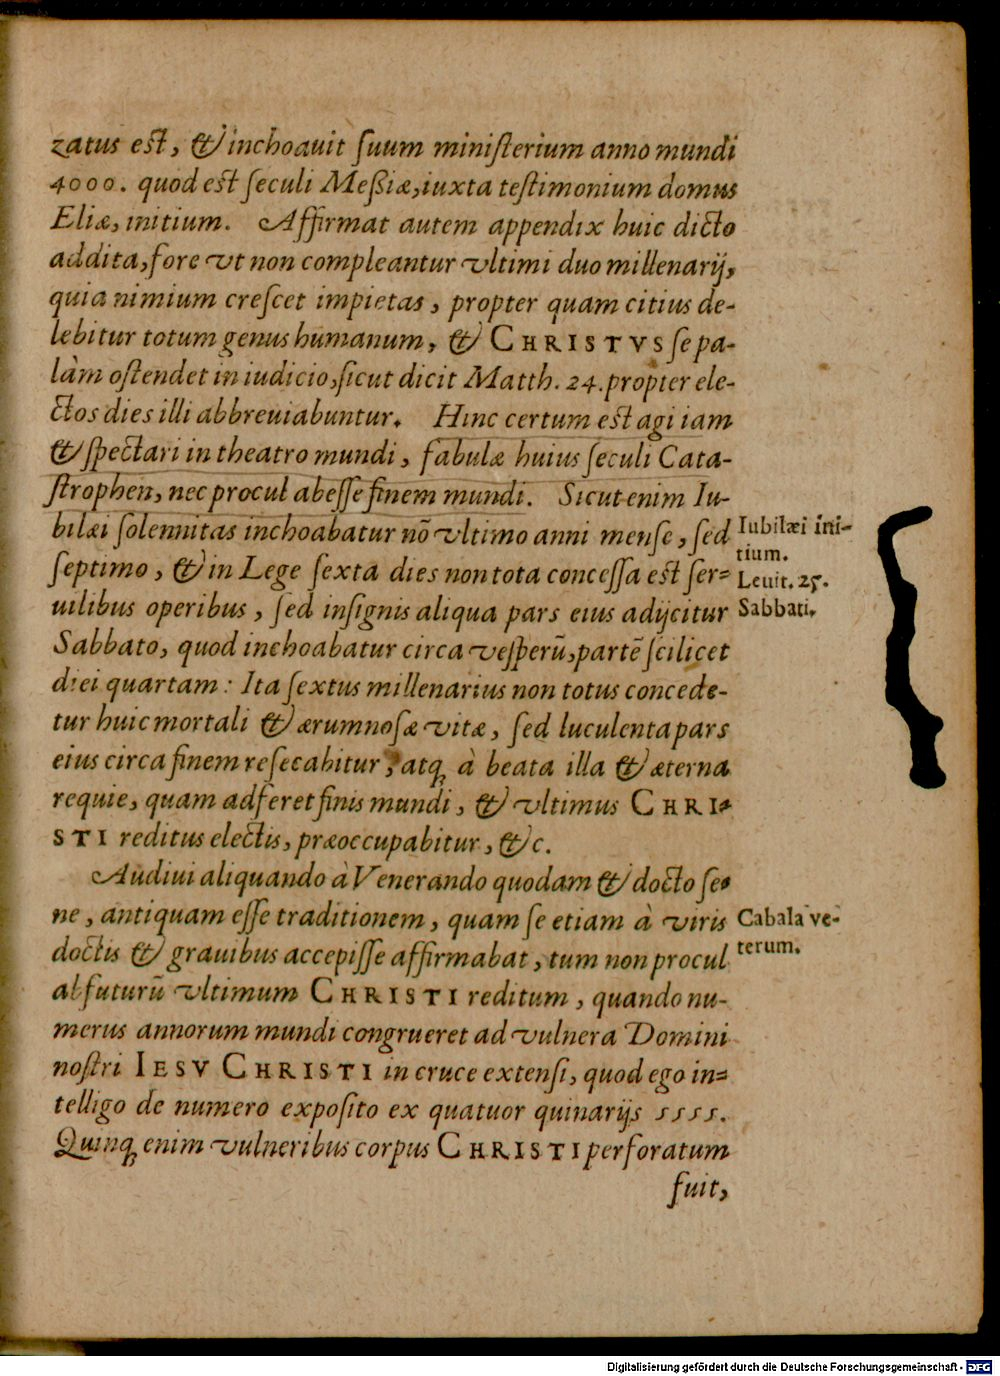 zatus est, & inchoauit ſuum miniſterium anno mundi
4000. quod est ſeculi Meßiæ, iuxta teſtimonium domus
Eliæ, initium. Affirmat autem appendix huic dicto
addita, fore vt non compleantur vltimi duo millenarij,
quia nimium creſcet impietas, propter quam citius de-
lebitur totum genus humanum, & CHRISTVS ſe pa-
làm oſtendet in iudicio, ſicut dicit Matth. 24. propter ele-
ctos dies illi abbreuiabuntur. Hinc certum est agi iam
& ſpectari in theatro mundi, fabulæ huius ſeculi Cata-
ſtrophen, nec procul abeſſe finem mundi. Sicut enim Iu-
bilæi ſolennitas inchoabatur nõ vltimo anni menſe, ſed
Iubilæi ini-
tium.
ſeptimo, & in Lege ſexta dies non tota conceſſa est ſer-
Leuit. 25.
uilibus operibus, ſed inſignis aliqua pars eius adijcitur
Sabbati.
Sabbato, quod inchoabatur circa veſperũ, partẽ ſcilicet
diei quartam: Ita ſextus millenarius non totus concede-
tur huic mortali & ærumnoſæ vitæ, ſed luculenta pars
eius circa finem reſecabitur, atq; à beata illa & æterna
requie, quam adferet finis mundi, & vltimus CHRI-
STI reditus electis, præoccupabitur, &c.
Audiui aliquando à Venerando quodam & docto ſe-
ne, antiquam eſſe traditionem, quam ſe etiam à viris
Cabala ve-
terum.
doctis & grauibus accepiſſe affirmabat, tum non procul
abfuturũ vltimum CHRISTI reditum, quando nu-
merus annorum mundi congrueret ad vulnera Domini
noſtri IESV CHRISTI in cruce extenſi, quod ego in-
telligo de numero expoſito ex quatuor quinarijs 5555.
Quinq; enim vulneribus corpus CHRISTI perforatum
fuit,
Digitalisierung gefördert durch die Deutsche Forschungsgemeinschaft - DFG